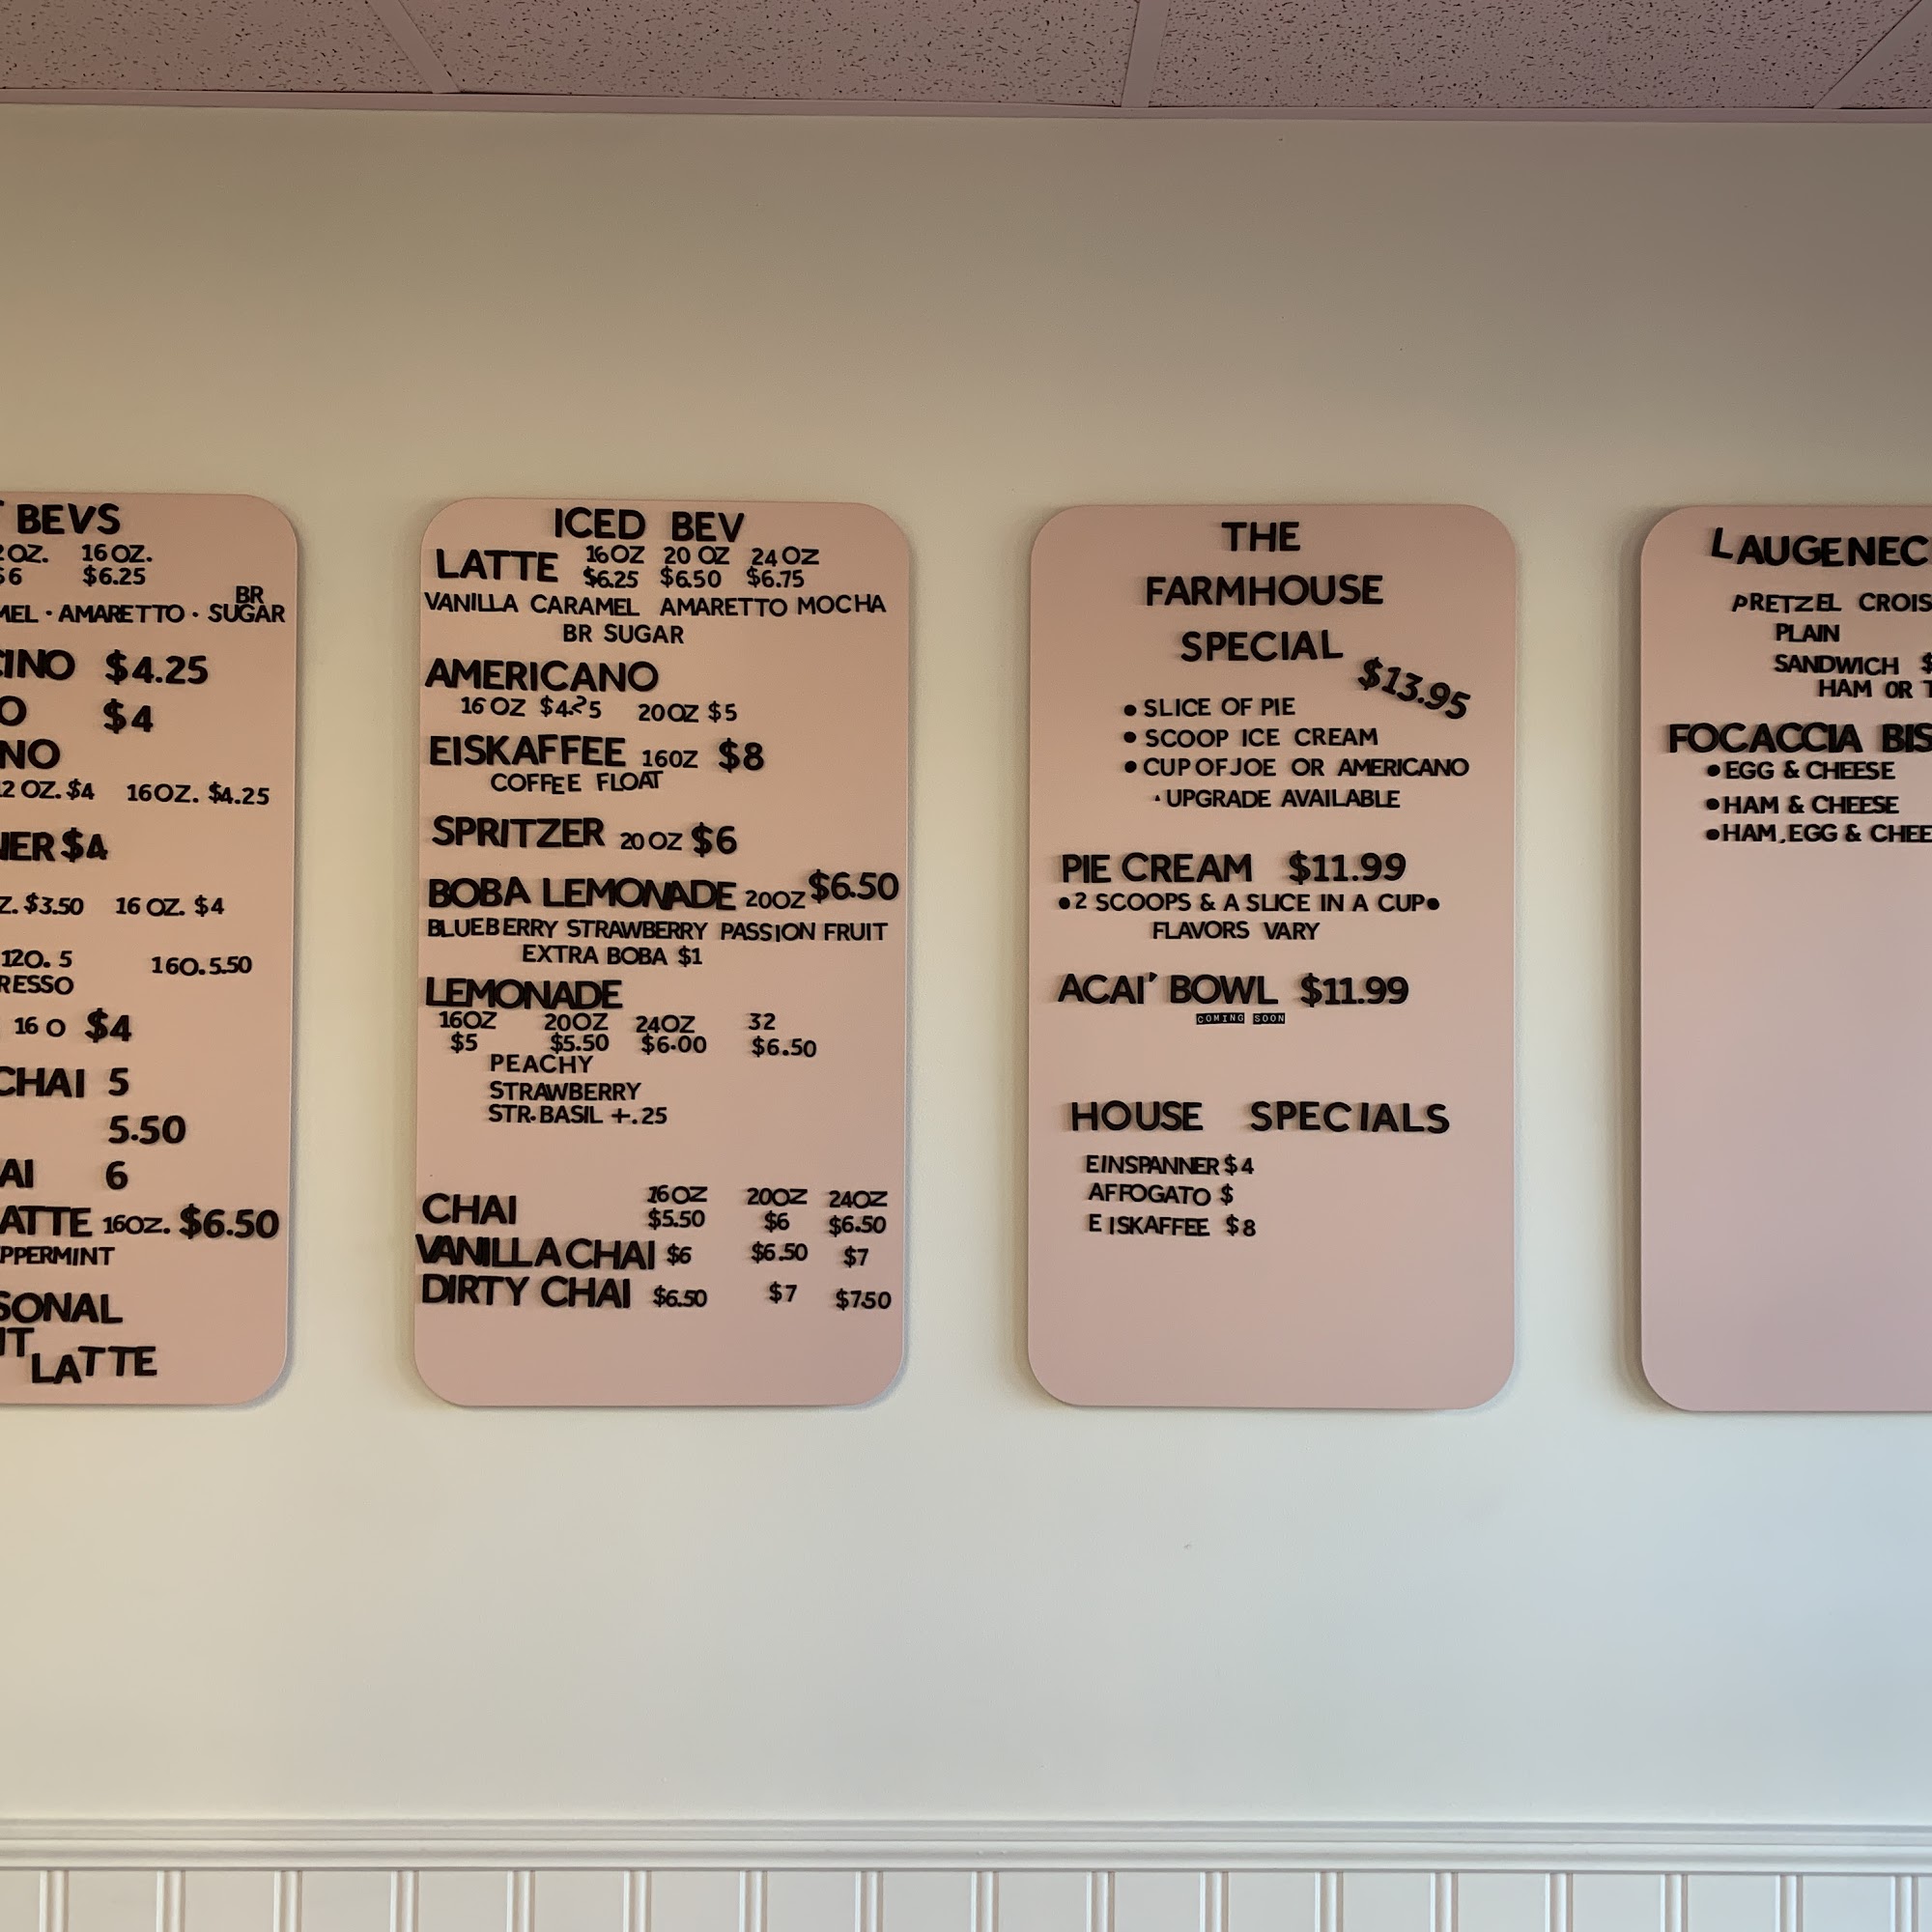 BEVS
OZ. 16 OZ.
$6 $6.25
BR
AMARETTO · SUGAR
$4.25
$4
12 OZ. $4 16OZ. $4.25
$4
$3.50 16 OZ. $4
12O. 5 16O. 5.50
16 O $4
CHAI 5
5.50
6
16OZ. $6.50
LATTE
ICED BEV
LATTE 16OZ 20 OZ 24 OZ
$6.25 $6.50 $6.75
VANILLA CARAMEL AMARETTO MOCHA
BR SUGAR
AMERICANO
16 OZ $4.25 20OZ $5
EISKAFFEE 16OZ $8
COFFEE FLOAT
SPRITZER 20 OZ $6
BOBA LEMONADE 20OZ $6.50
BLUEBERRY STRAWBERRY PASSION FRUIT
EXTRA BOBA $1
LEMONADE
16OZ 20OZ 24OZ 32
$5 $5.50 $6.00 $6.50
PEACHY
STRAWBERRY
STR. BASIL +.25
16OZ 20OZ 24OZ
CHAI $5.50 $6 $6.50
VANILLA CHAI $6 $6.50 $7
DIRTY CHAI $6.50 $7 $7.50
THE
FARMHOUSE
SPECIAL
$13.95
• SLICE OF PIE
• SCOOP ICE CREAM
• CUP OF JOE OR AMERICANO
· UPGRADE AVAILABLE
PIE CREAM $11.99
•2 SCOOPS & A SLICE IN A CUP•
FLAVORS VARY
ACAI' BOWL $11.99
COMING SOON
HOUSE SPECIALS
EINSPANNER $4
AFFOGATO $
EISKAFFEE $8
PRETZEL
PLAIN
SANDWICH $
HAM OR
FOCACCIA
•EGG & CHEESE
•HAM & CHEESE
•HAM, EGG &